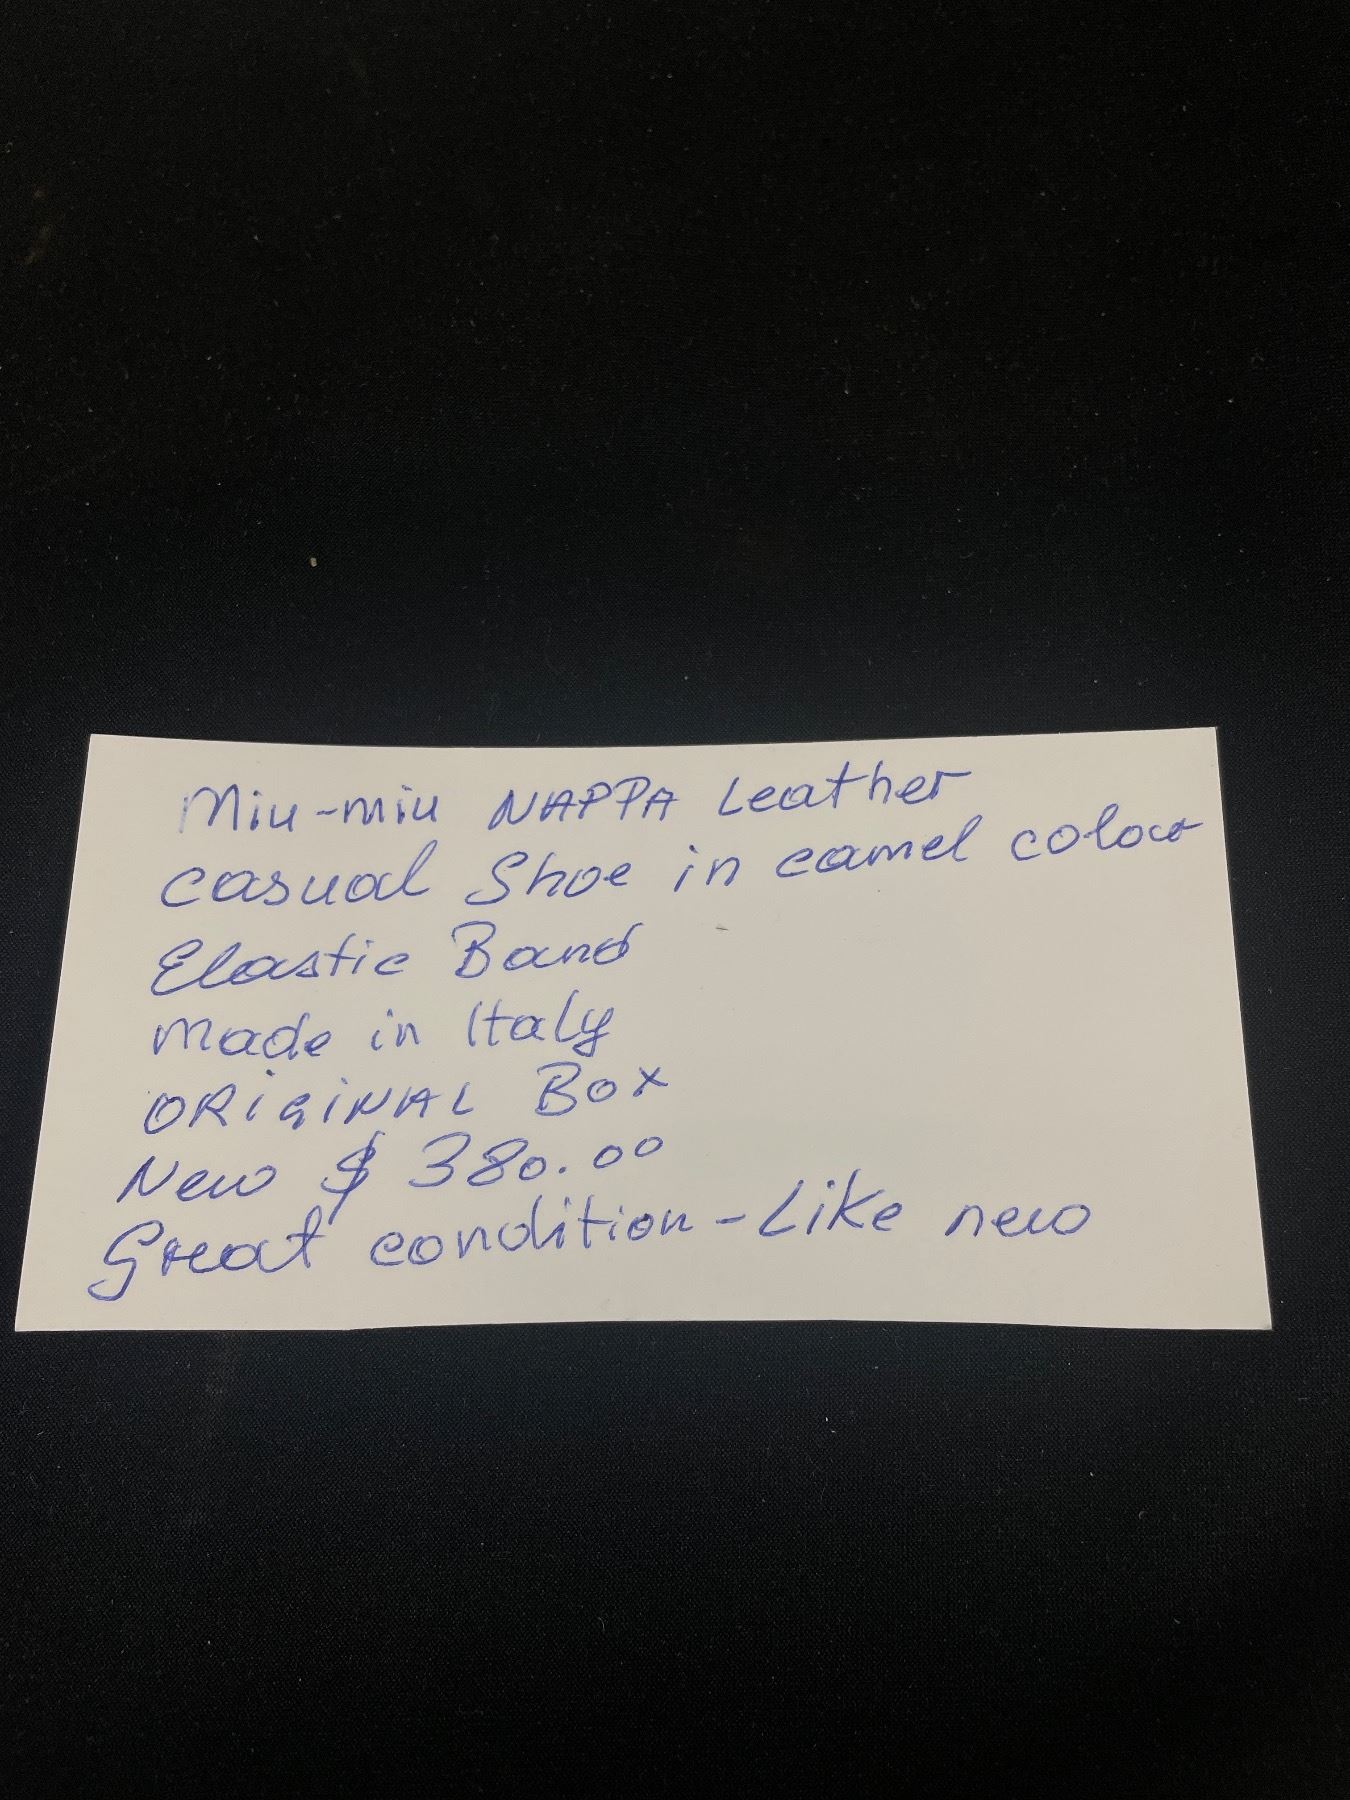 Miu-miu NAPPA Leather
casual Shoe in camel colour
Elastic Band
Made in Italy
ORiGiNAL Box
New $ 380.00
Great condition - Like new